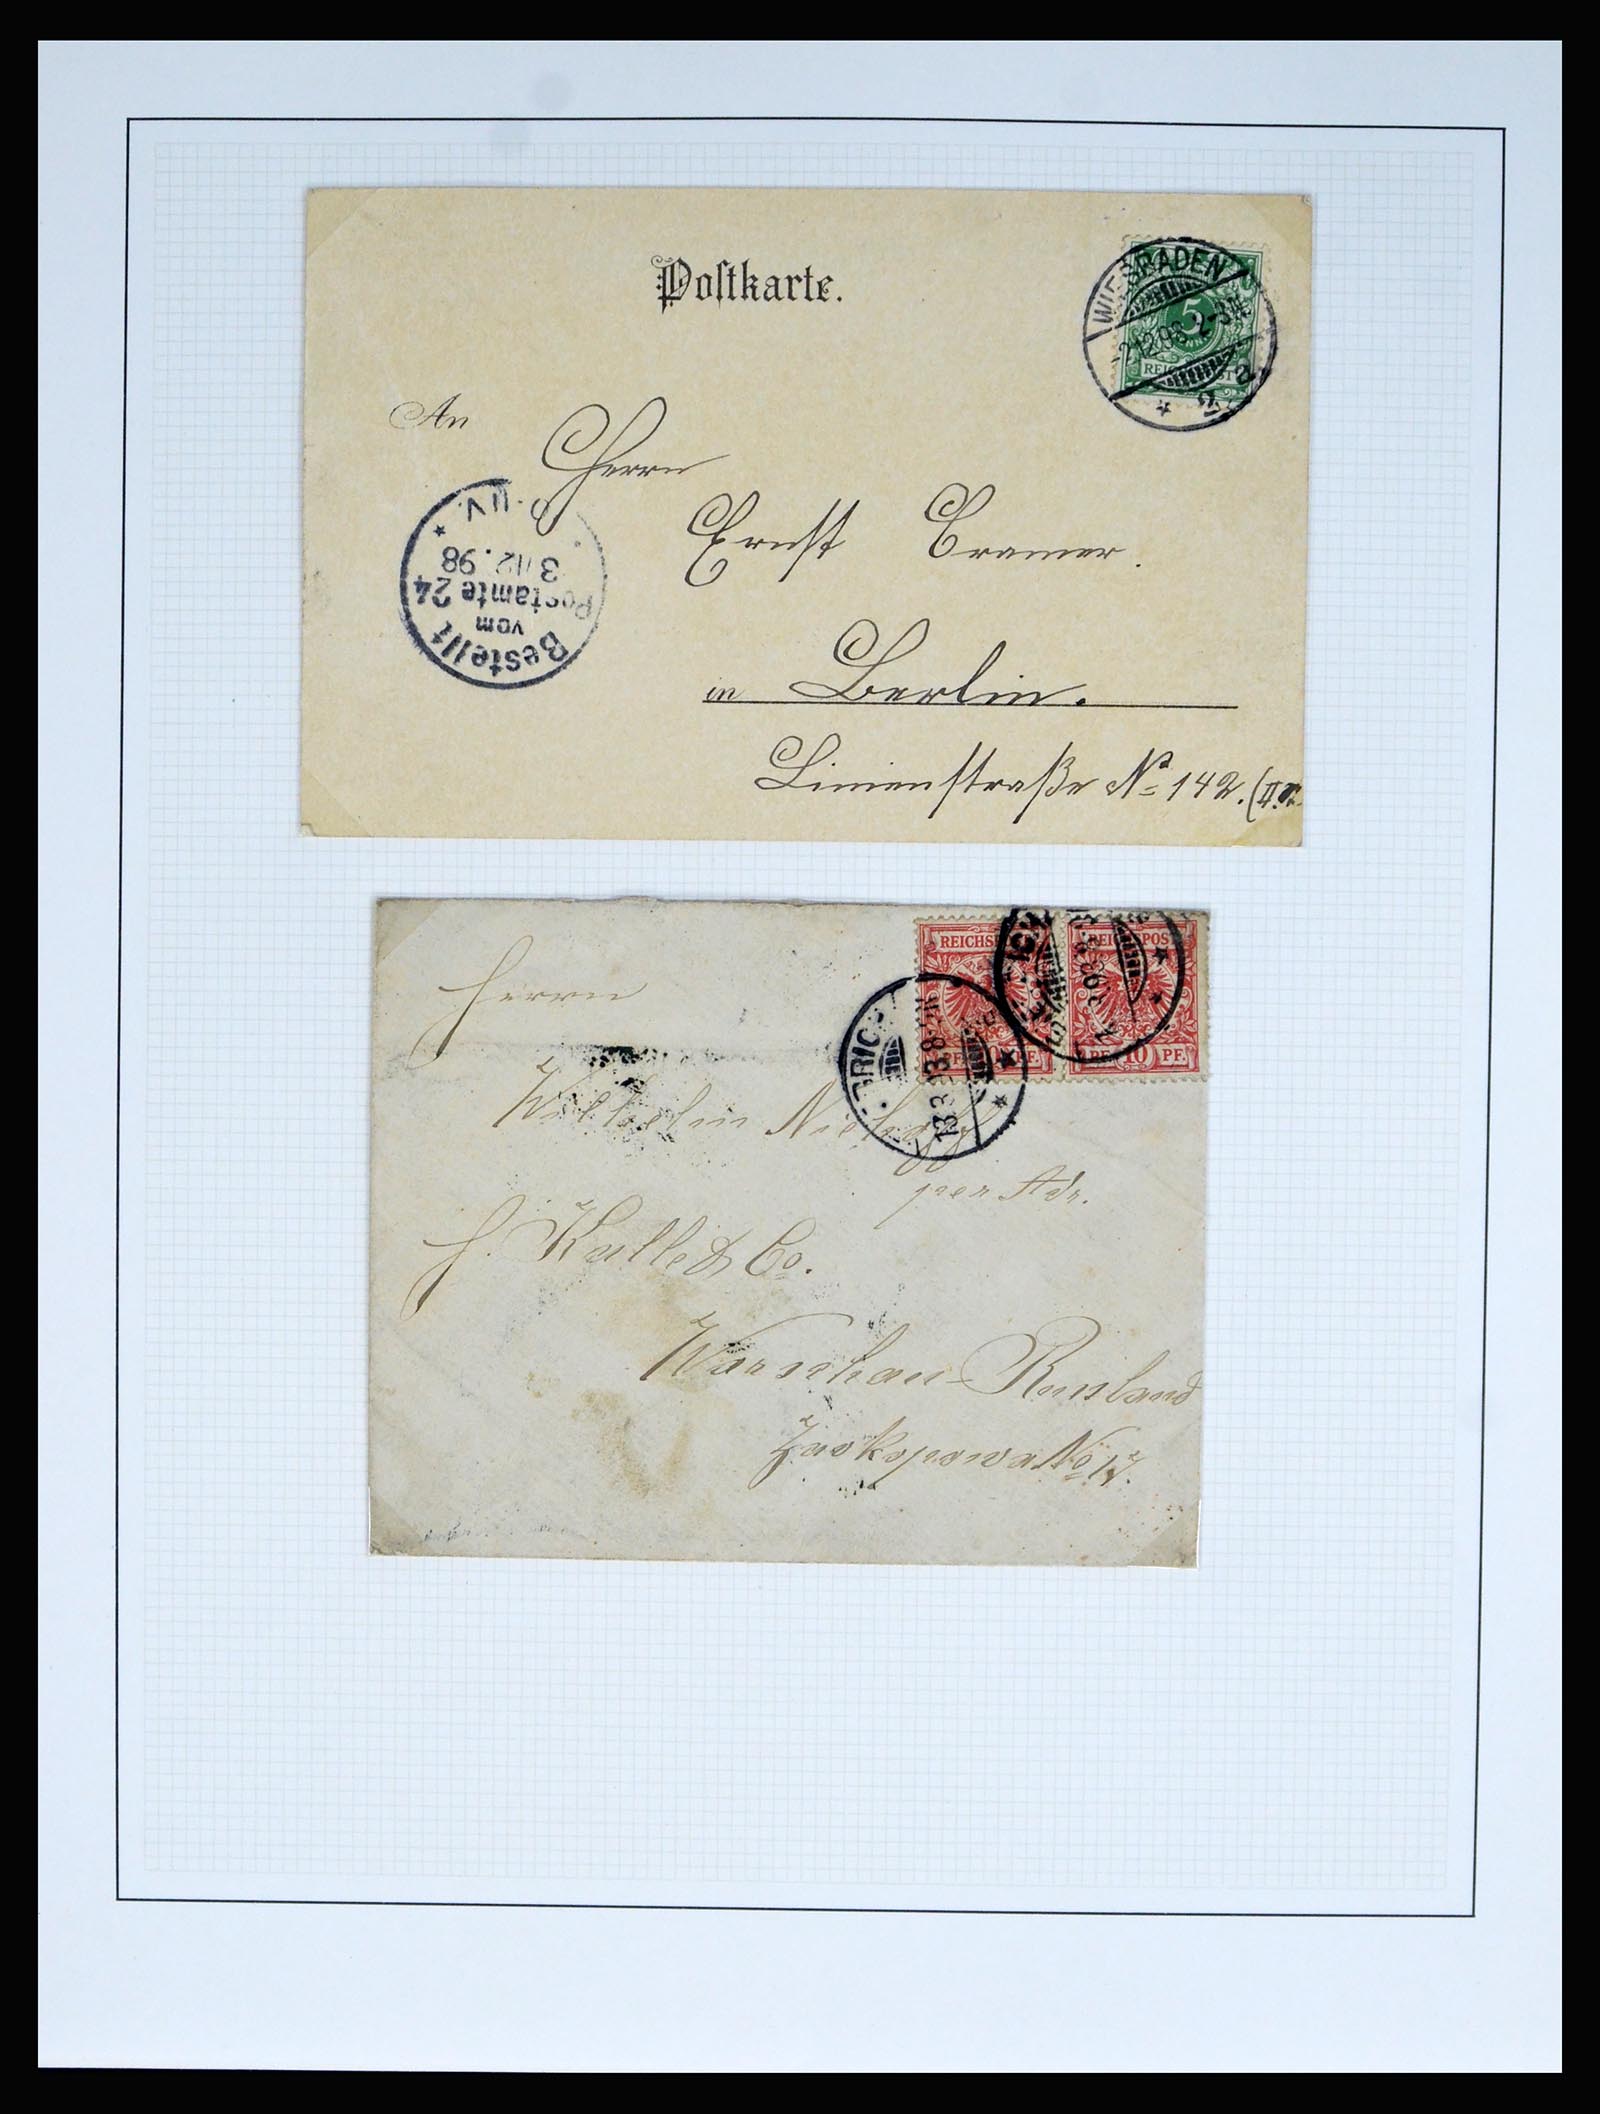 Postkarte.
WIESBADEN
2.12.98 2-3N.
5
REICHSPOST
An
Herrn
Ernst Cramer.
in Berlin.
Linienstraße No 142. (II.
Bestellt
vom
Postamte 24
3/12.98
N.
REICHSPOST
REICHSPOST
13.3.93.8-9N.
10 PF.
Herrn
Wilhelm Niehoff
per Adr.
H. Kulle & Co.
Warschau-Russland
No 17.